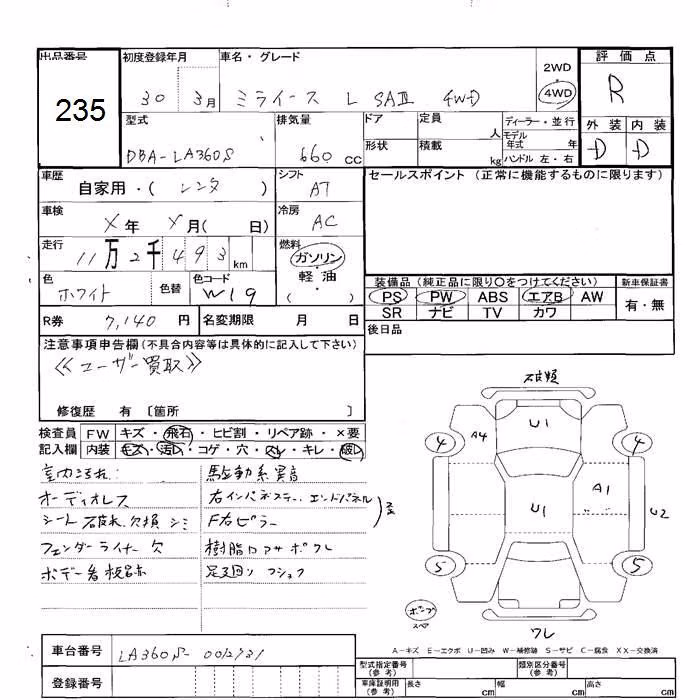 出品番号 初度登録年月 車名・グレード 2WD 評価点
235 30 3月 ミライース L SAⅢ 4WD 4WD R
型式 排気量 ドア 定員 人 ディーラー・並行 外装 内装
DBA-LA360S 660 CC 形状 積載 kg モデル年式 年 ハンドル 左・右 D D
車歴 自家用・( レンタ ) シフト AT セールスポイント (正常に機能するものに限ります)
車検 X 年 Y 月( 日) 冷房 AC
走行 11万2千493 km 燃料 ガソリン
軽・油
( )
色 ホワイト 色替 色コード W19
装備品 (純正品に限り〇をつけてください) 新車保証書
PS PW ABS エアB AW 有・無
SR ナビ TV カワ
R券 7,140 円 名変期限 月 日
後日品
注意事項申告欄 (不具合内容等は具体的に記入して下さい)
《ユーザー買取》
修復歴 有 〔箇所 〕
検査員 FW キズ・飛石・ヒビ割・リペア跡・×要
記入欄 内装 キズ・汚レ・コゲ・穴・スレ・キレ・破レ
室内汚れ: 駆動系異音
オーディオレス 右インパネステー、エンドパネル
シート破れ、欠損、シミ F右ピラー
フェンダーライナー欠 樹脂ロアサポワレ
ボデー看板跡 足廻りフショク
破損
U1
A4
4 4
A1
U1
U2
5 5
ワレ
A-キズ E-エクボ U-凹み W-補修跡 S-サビ C-腐食 XX-交換済
車台番号 LA360S-0012131
登録番号
型式指定番号 (参考) 類別区分番号 (参考)
車庫証明用 (参考) 長さ cm 幅 cm 高さ cm